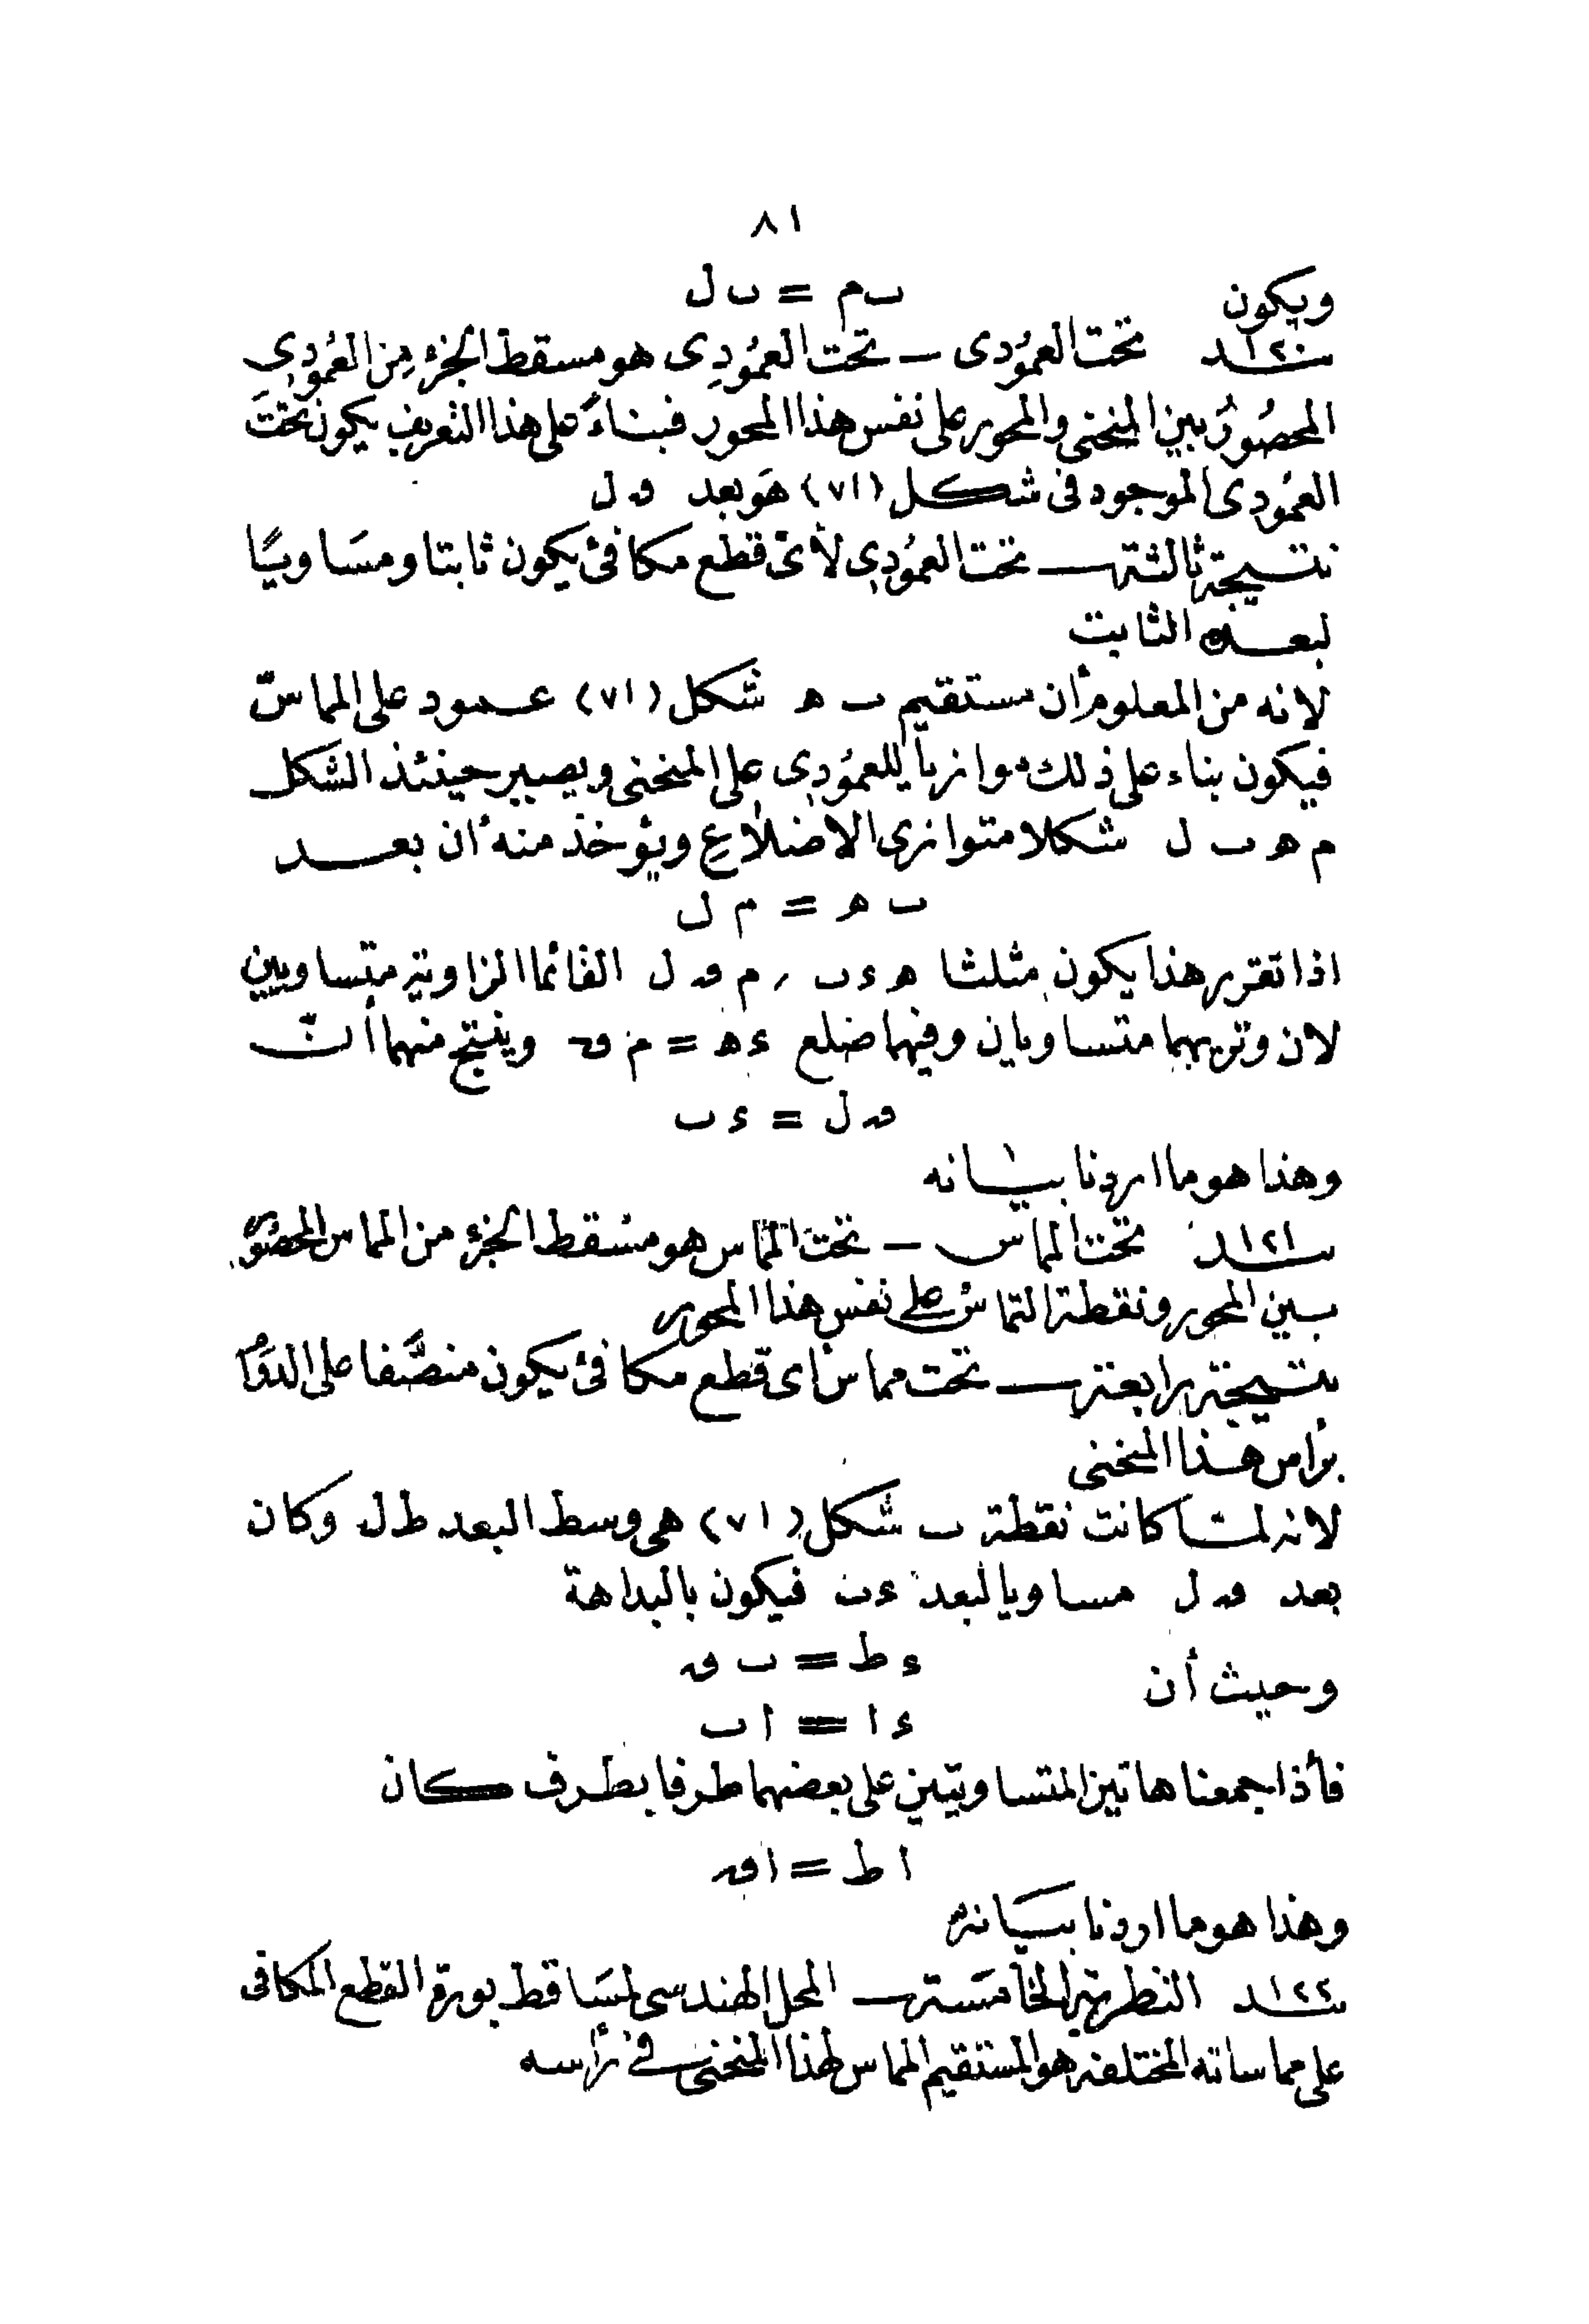 ٨١
ويكون ب م = ب ل
١٢٠ بند تحت العمودى – تحت العمودى هو مسقط الجزء من العمودى
المحصور بين المنحنى والمحور على نفس هذا المحور فبناءً على هذا التعريف يكون تحت
العمودى الموجود فى شكل (٧١) هو بعد ق ل
نتيجة ثالثة – تحت العمودى لأىّ قطع مكافئ يكون ثابتا ومساويا
لبعده الثابت
لانه من المعلوم أن مستقيم ب ه شكل (٧١) عمود على المماسّ
فيكون بناء على ذلك موازيا للعمودى على المنحنى ويصير حينئذ الشكل
م ه ب ل شكلا متوازى الاضلاع ويؤخذ منه أن بعد
ب ه = م ل
اذا تقرر هذا يكون مثلثا ه ء ب , م ق ل القائما الزاوية متساويين
لان وتريهما متساويان وفيهما ضلع ء ه = م ق وينتج منهما أنّ
ق ل = ء ب
وهذا هو ما اردنا بيانه
١٢١ بند تحت المماس – تحت المماس هو مسقط الجزء من المماس المحصور
بين المحور ونقطة التماس على نفس هذا المحور
نتيجة رابعة – تحت مماس أى قطع مكافئ يكون منصّفا على الدوام
برأس هذا المنحنى
لانه لما كانت نقطة ب شكل (٧١) هى وسط البعد ط ل وكان
بعد ق ل مساويا لبعد ء ب فيكون بالبداهة
ء ط = ب ق
وحيث أن
ء ا = ا ب
فأذا جمعنا هاتين المتساويتين على بعضهما طرفا بطرف كان
ا ط = ا ق
وهذا هو ما اردنا بيانه
١٢٢ بند النظرية الخامسة – المحل الهندسى لمساقط بورة القطع المكافى
على مماساته المختلفة هو المستقيم المماس لهذا المنحنى فى رأسه